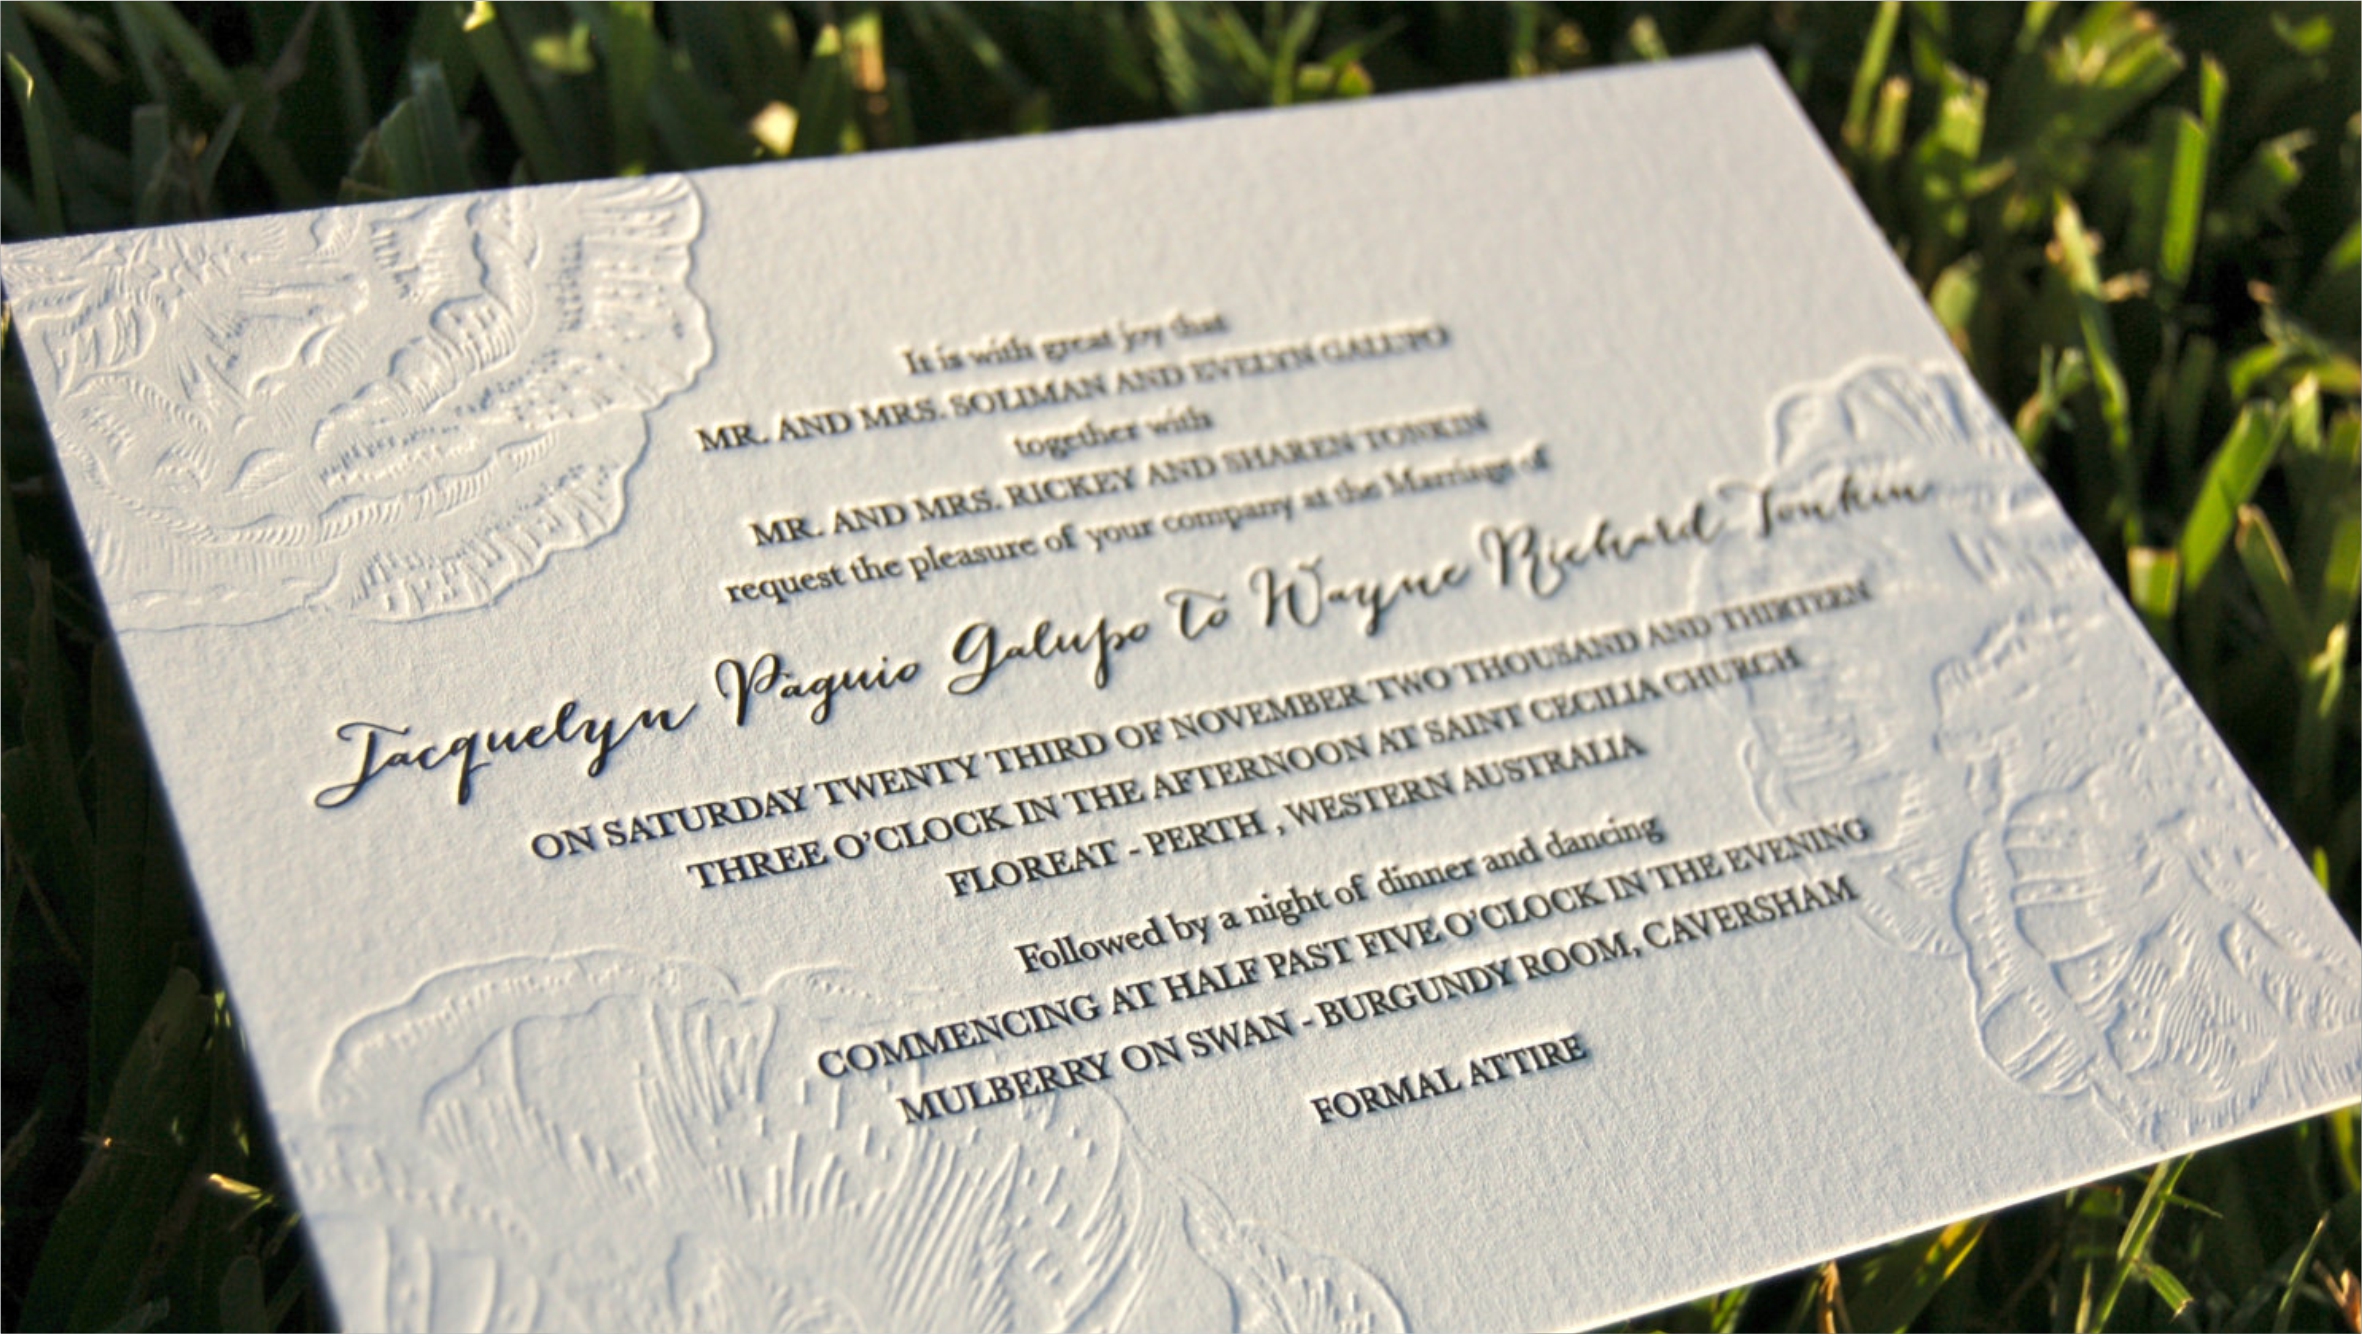 It is with great joy that
MR. AND MRS. SOLIMAN AND EVELYN GALUPO
together with
MR. AND MRS. RICKEY AND SHAREN TONKIN
request the pleasure of your company at the Marriage of
Jacquelyn Paguio Galupo to Wayne Richard Tonkin
ON SATURDAY TWENTY THIRD OF NOVEMBER TWO THOUSAND AND THIRTEEN
THREE O'CLOCK IN THE AFTERNOON AT SAINT CECILIA CHURCH
FLOREAT - PERTH , WESTERN AUSTRALIA
Followed by a night of dinner and dancing
COMMENCING AT HALF PAST FIVE O'CLOCK IN THE EVENING
MULBERRY ON SWAN - BURGUNDY ROOM, CAVERSHAM
FORMAL ATTIRE